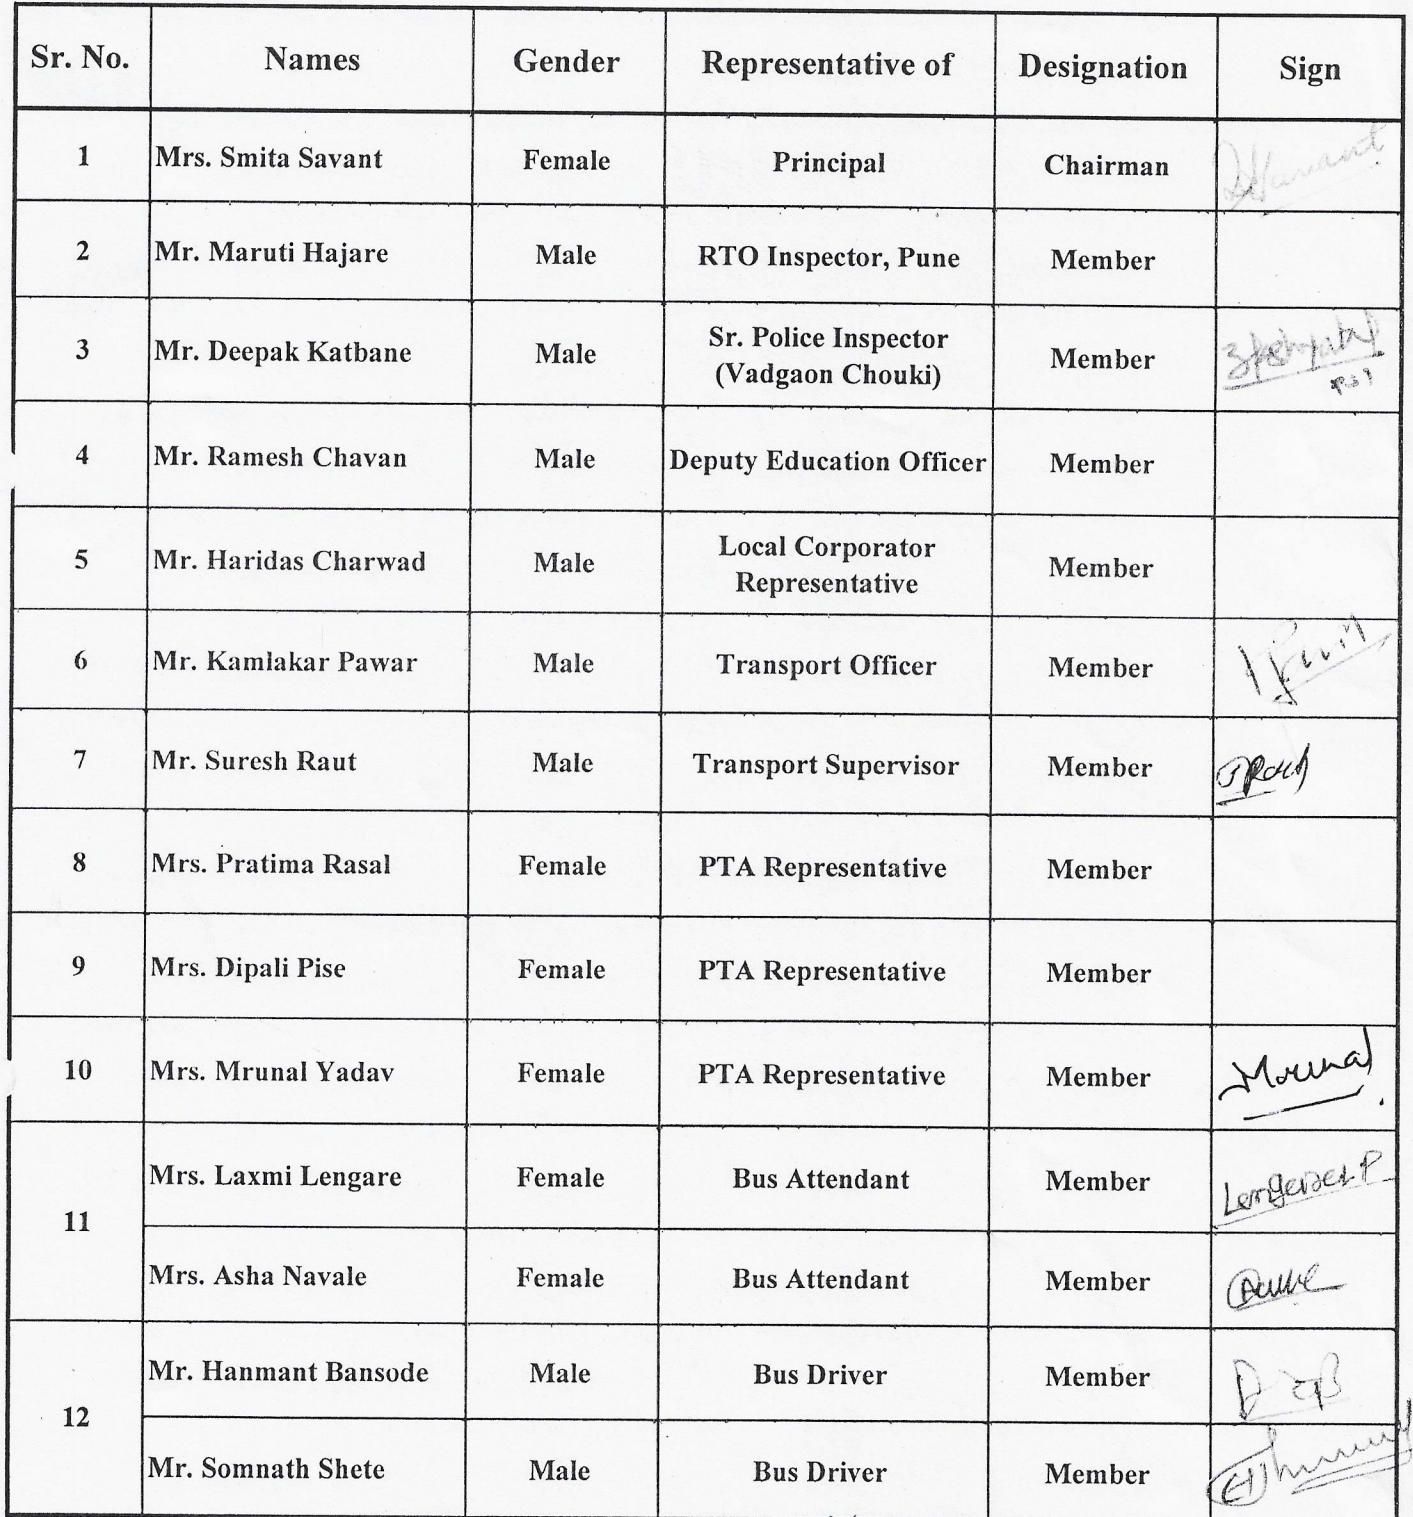 Sr. No. Names Gender Representative of Designation Sign
1 Mrs. Smita Savant Female Principal Chairman
2 Mr. Maruti Hajare Male RTO Inspector, Pune Member
3 Mr. Deepak Katbane Male Sr. Police Inspector
(Vadgaon Chouki) Member
4 Mr. Ramesh Chavan Male Deputy Education Officer Member
5 Mr. Haridas Charwad Male Local Corporator
Representative Member
6 Mr. Kamlakar Pawar Male Transport Officer Member
7 Mr. Suresh Raut Male Transport Supervisor Member
8 Mrs. Pratima Rasal Female PTA Representative Member
9 Mrs. Dipali Pise Female PTA Representative Member
10 Mrs. Mrunal Yadav Female PTA Representative Member Mrunal
11 Mrs. Laxmi Lengare Female Bus Attendant Member
Mrs. Asha Navale Female Bus Attendant Member
12 Mr. Hanmant Bansode Male Bus Driver Member
Mr. Somnath Shete Male Bus Driver Member